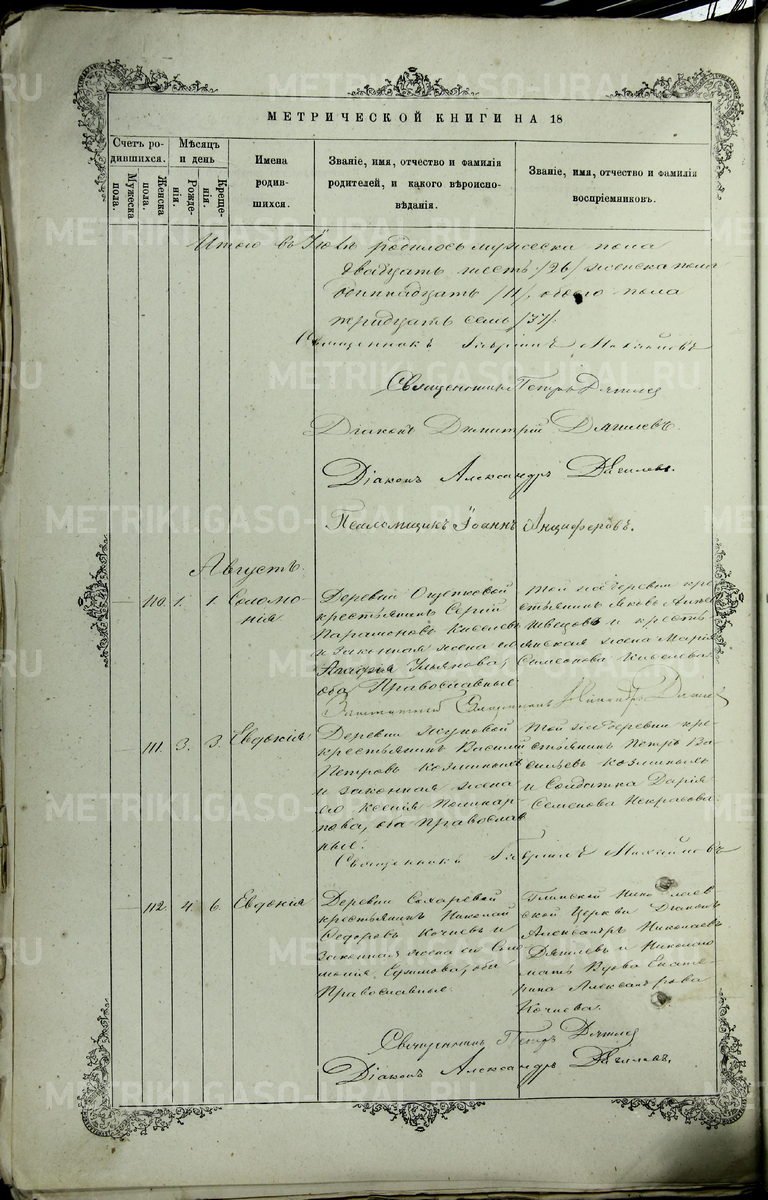 METRIKI.GASO-URAL.RU
МЕТРИЧЕСКОЙ КНИГИ НА 18
Счетъ родившихся.
Мужеска пола.
Женска пола.
Мѣсяцъ и день
Рожденія.
Крещенія.
Имена родившихся.
Званіе, имя, отчество и фамилія
родителей, и какого вѣроисповѣданія.
Званіе, имя, отчество и фамилія
воспріемниковъ.
Итого въ Іюлѣ родилось мужеска пола
двадцать шесть /26/ женска пола
одиннадцать /11/, обоего пола
тридцать семь /37/.
Священникъ Гавріилъ
Священникъ Петръ Дягилевъ
Діаконъ Димитрій Дягилевъ.
Діаконъ Александръ Дягилевъ.
Псаломщикъ Іоаннъ Анциферовъ.
Августъ.
110. 1. 1. Соломонія
Деревни Ощепковой
крестьянинъ Сергій
Парамоновъ Киселевъ
и законная жена его
Ульянова,
оба Православные
Той же деревни крестьянинъ Яковъ
Швецовъ и крестьянская жена Марія
Симеонова Киселева.
Священникъ
111. 3. 3. Евдокія
Деревни
крестьянинъ Василій
Петровъ
и законная жена
его Ксенія Поликарпова, оба Православные.
Той же деревни крестьянинъ Петръ Васильевъ
и Солдатка Дарія
Семенова Некрасова.
Священникъ Гавріилъ
112. 4. 6. Евдокія
Деревни
крестьянинъ Николай
Федоровъ Кочневъ и
законная жена его Соломонія Ефимова, оба
Православные.
Глинской Николаевской Церкви Діаконъ
Александръ Николаевъ
Дягилевъ и
Вдова Екатерина Александрова
Кочнева.
Священникъ Петръ Дягилевъ
Діаконъ Александръ Дягилевъ.